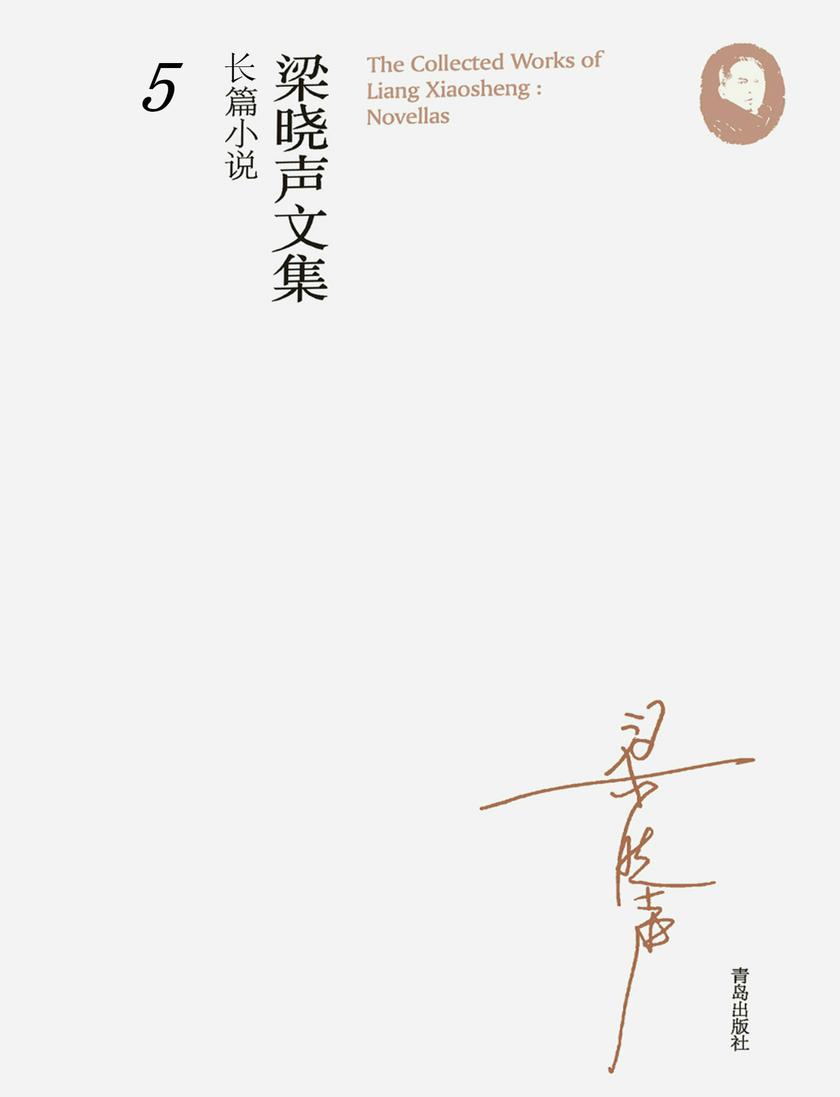 5
长篇小说
梁晓声文集
The Collected Works of
Liang Xiaosheng :
Novellas
梁晓声
青岛出版社